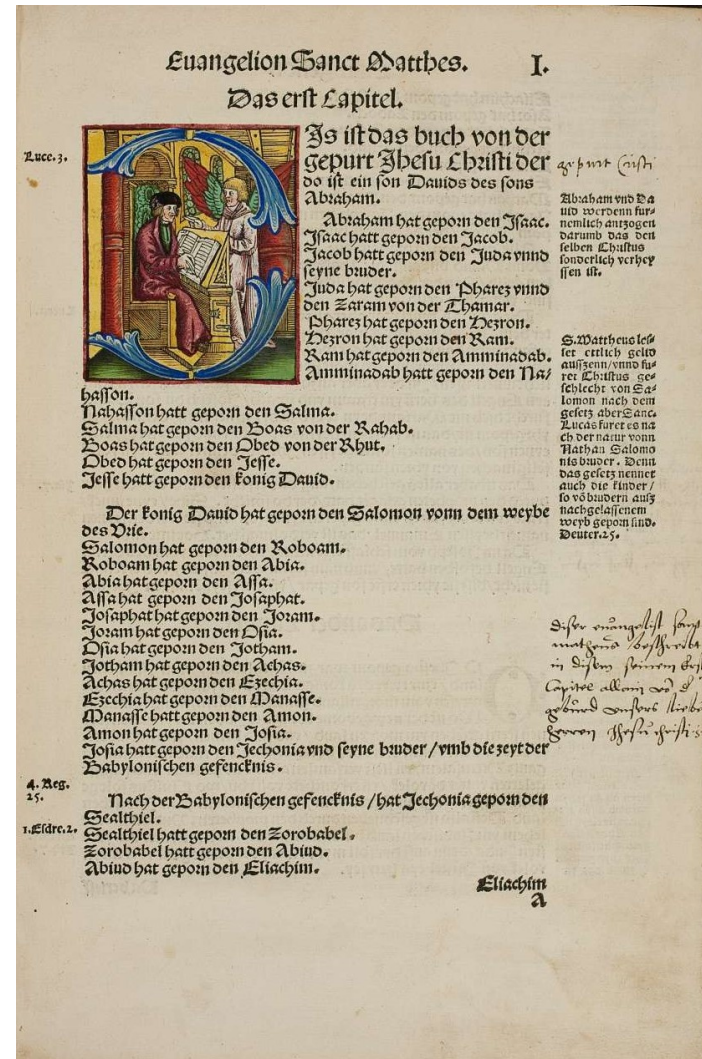 Euangelion Sanct Matthes. I.
Das erst Capitel.
Luce. 3.
Is ist das buch von der
gepurt Jhesu Christi der
do ist ein son Dauids des sons
Abraham.
Abraham hat geporn den Isaac.
Isaac hatt geporn den Jacob.
Jacob hatt geporn den Juda vnnd
seyne bruder.
Juda hat geporn den Pharez vnnd
den Zaram von der Thamar.
Pharez hat geporn den Hezron.
Hezron hat geporn den Ram.
Ram hat geporn den Amminadab.
Amminadab hatt geporn den Na/
hasson.
Nahasson hatt geporn den Salma.
Salma hat geporn den Boas von der Rahab.
Boas hat geporn den Obed von der Rhut.
Obed hat geporn den Jesse.
Jesse hatt geporn den konig Dauid.
Der konig Dauid hat geporn den Salomon vonn dem weybe
des Vrie.
Salomon hat geporn den Roboam.
Roboam hat geporn den Abia.
Abia hat geporn den Assa.
Assa hat geporn den Josaphat.
Josaphat hat geporn den Joram.
Joram hat geporn den Osia.
Osia hat geporn den Jotham.
Jotham hat geporn den Achas.
Achas hat geporn den Ezechia.
Ezechia hat geporn den Manasse.
Manasse hatt geporn den Amon.
Amon hat geporn den Josia.
Josia hatt geporn den Jechonia vnd seyne bruder / vmb die zeyt der
Babylonischen gefencknis.
4. Reg.
25.
Nach der Babylonischen gefencknis / hat Jechonia geporn den
Sealthiel.
1. Esdre. 2.
Sealthiel hatt geporn den Zorobabel.
Zorobabel hatt geporn den Abiud.
Abiud hat geporn den Eliachim.
Eliachim
A
gepurt Cristi
Abraham vnd Da
uid werdenn fur⸗
nemlich antzogen
darumb das den
selben Christus
sonderlich verhey
ssen ist.
S. Mattheus les⸗
set ettlich gelid
aussenn / vnnd fu⸗
ret Christus ge⸗
schlecht von Sa⸗
lomon nach dem
gesetz aber Sanc.
Lucas furet es na
ch der natur vonn
Nathan Salomo
nis bruder. Denn
das gesetz nennet
auch die kinder /
so võ brudern ausz
nachgelassenem
weyb geporn sind.
Deuter. 25.
diser euangelist
matheus beschreibt
in disem seinem
Capitel allain
geburd vnsers liebe
herren Jhesu christi